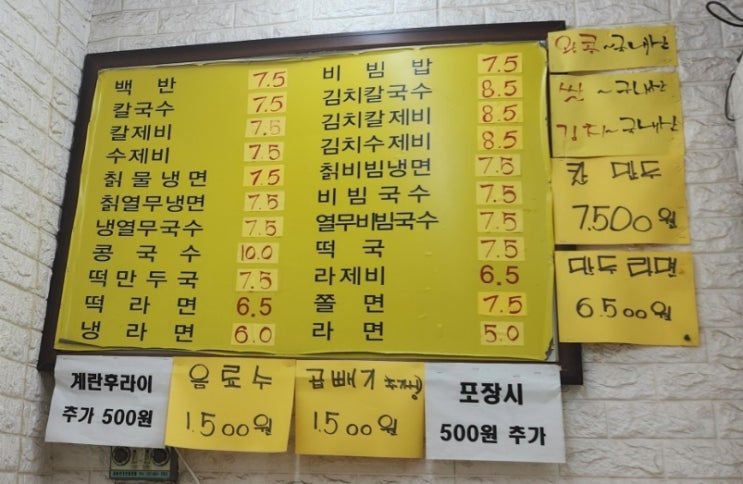 백반 7.5
칼국수 7.5
칼제비 7.5
수제비 7.5
칡물냉면 7.5
칡열무냉면 7.5
냉열무국수 7.5
콩국수 10.0
떡만두국 7.5
떡라면 6.5
냉라면 6.0
비빔밥 7.5
김치칼국수 8.5
김치칼제비 8.5
김치수제비 8.5
칡비빔냉면 7.5
비빔국수 7.5
열무비빔국수 7.5
떡국 7.5
라제비 6.5
쫄면 7.5
라면 5.0
~국내산
쌀 ~국내산
김치~국내산
칼 만두
7.500원
만두라면
6.500원
계란후라이
추가 500원
음료수
1.500원
곱빼기
1.500원
포장시
500원 추가